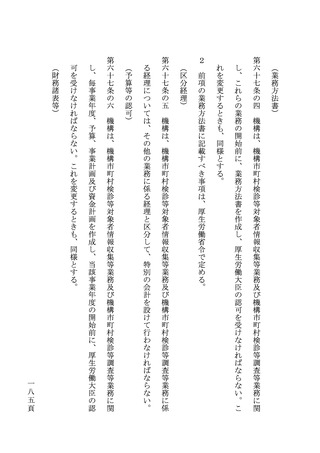 （業務方法書）
第六十七条の四　機構は、機構市町村検診等対象者情報収集等業務及び機構市町村検診等調査等業務に関
し、これらの業務の開始前に、業務方法書を作成し、厚生労働大臣の認可を受けなければならない。こ
れを変更するときも、同様とする。
２　前項の業務方法書に記載すべき事項は、厚生労働省令で定める。
（区分経理）
第六十七条の五　機構は、機構市町村検診等対象者情報収集等業務及び機構市町村検診等調査等業務に係
る経理については、その他の業務に係る経理と区分して、特別の会計を設けて行わなければならない。
（予算等の認可）
第六十七条の六　機構は、機構市町村検診等対象者情報収集等業務及び機構市町村検診等調査等業務に関
し、毎事業年度、予算、事業計画及び資金計画を作成し、当該事業年度の開始前に、厚生労働大臣の認
可を受けなければならない。これを変更するときも、同様とする。
（財務諸表等）
一八五頁